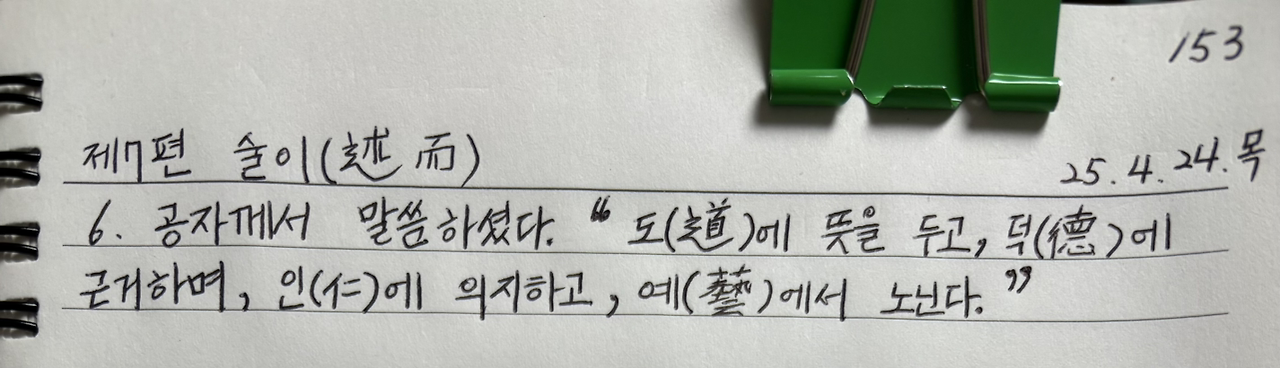 153
제7편 술이(述而)
25.4.24.목
6. 공자께서 말씀하셨다. "도(道)에 뜻을 두고, 덕(德)에
근거하며, 인(仁)에 의지하고, 예(藝)에서 노닌다."